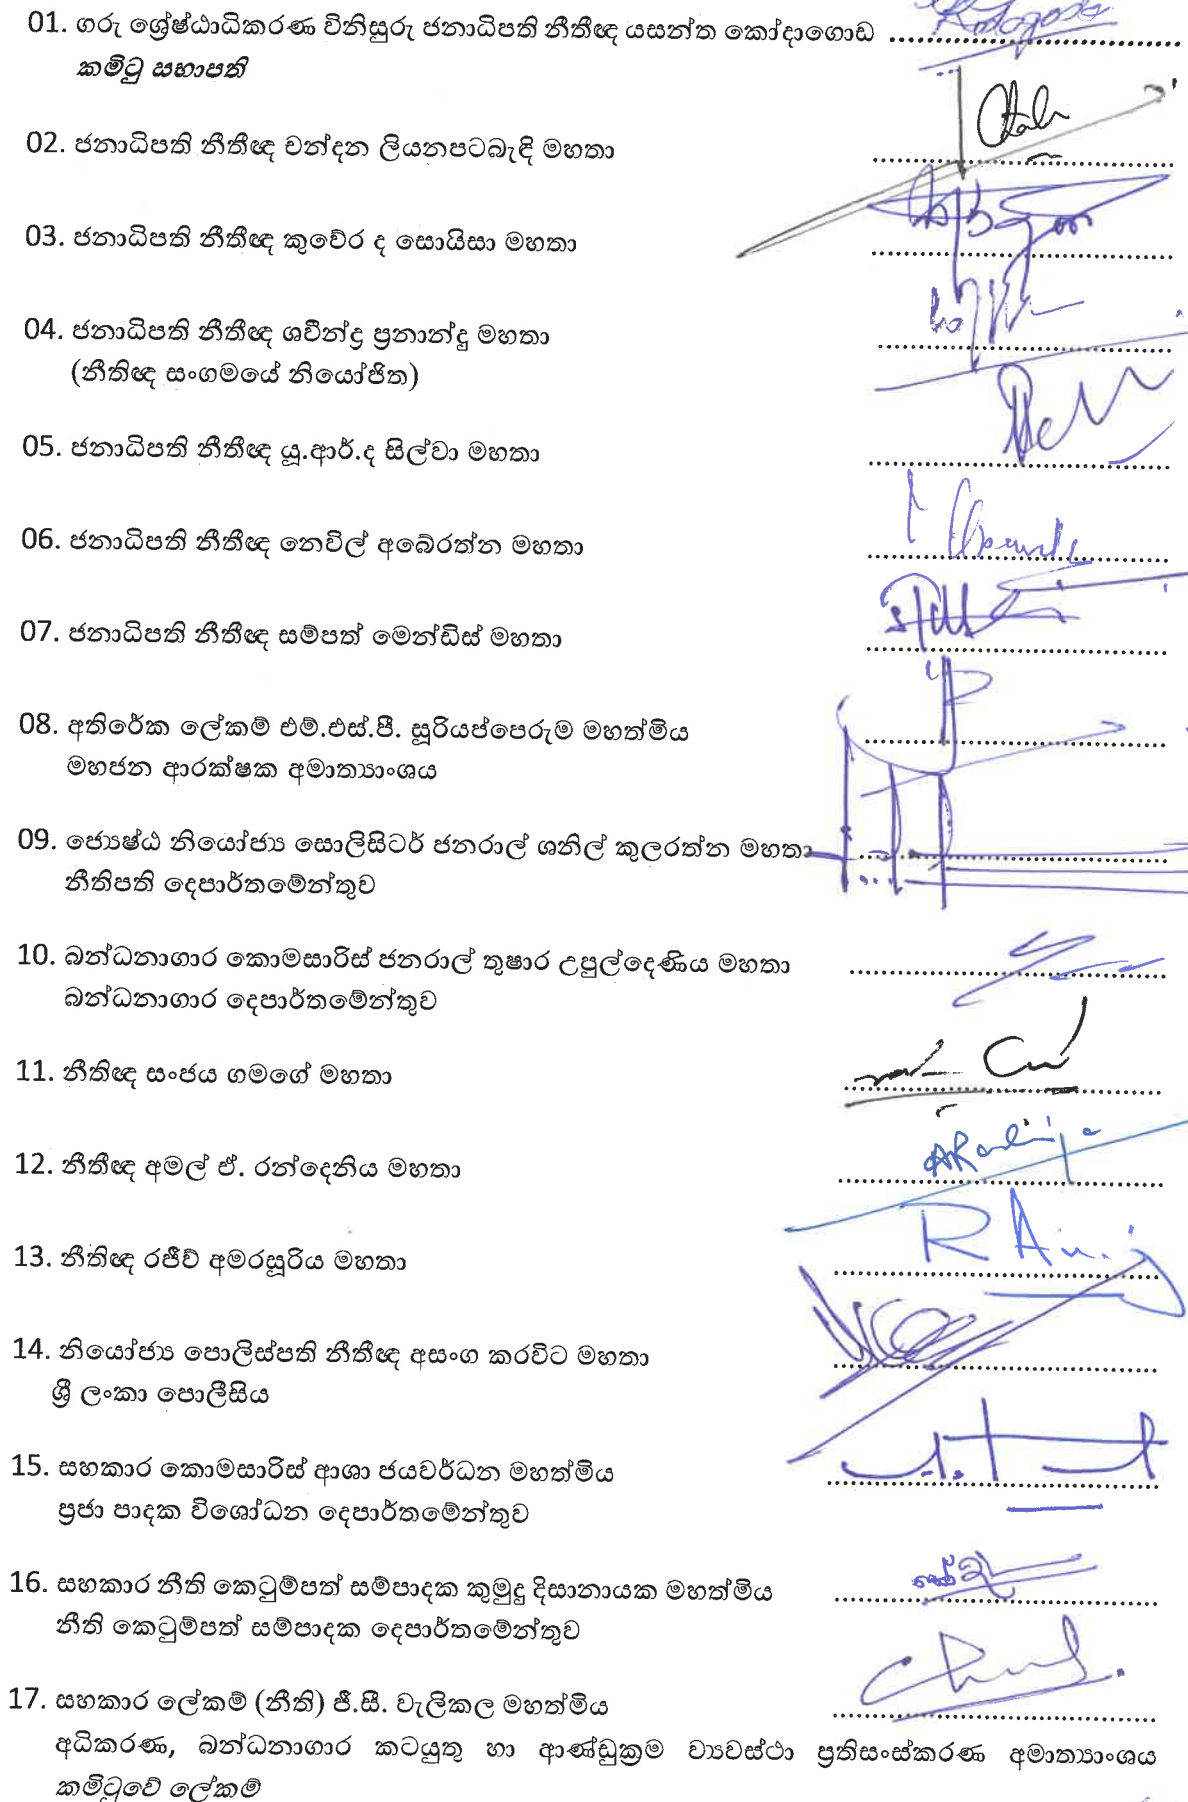 01. ගරු ශ්‍රේෂ්ඨාධිකරණ විනිසුරු ජනාධිපති නීතීඥ යසන්ත කෝදාගොඩ ........................................
කමිටු සභාපති
02. ජනාධිපති නීතීඥ චන්දන ලියනපටබැඳි මහතා ........................................
03. ජනාධිපති නීතීඥ කුවේර ද සොයිසා මහතා ........................................
04. ජනාධිපති නීතීඥ ශවීන්ද්‍ර ප්‍රනාන්දු මහතා ........................................
(නීතිඥ සංගමයේ නියෝජිත)
05. ජනාධිපති නීතීඥ යූ.ආර්.ද සිල්වා මහතා ........................................
06. ජනාධිපති නීතීඥ නෙවිල් අබේරත්න මහතා ........................................
07. ජනාධිපති නීතීඥ සම්පත් මෙන්ඩිස් මහතා ........................................
08. අතිරේක ලේකම් එම්.එස්.පී. සූරියප්පෙරුම මහත්මිය ........................................
මහජන ආරක්ෂක අමාත්‍යාංශය
09. ජ්‍යෙෂ්ඨ නියෝජ්‍ය සොලිසිටර් ජනරාල් ශනිල් කුලරත්න මහතා ........................................
නීතිපති දෙපාර්තමේන්තුව
10. බන්ධනාගාර කොමසාරිස් ජනරාල් තුෂාර උපුල්දෙණිය මහතා ........................................
බන්ධනාගාර දෙපාර්තමේන්තුව
11. නීතිඥ සංජය ගමගේ මහතා ........................................
12. නීතීඥ අමල් ඒ. රන්දෙනිය මහතා ........................................
13. නීතිඥ රජීව් අමරසූරිය මහතා ........................................
14. නියෝජ්‍ය පොලිස්පති නීතීඥ අසංග කරවිට මහතා ........................................
ශ්‍රී ලංකා පොලීසිය
15. සහකාර කොමසාරිස් ආශා ජයවර්ධන මහත්මිය ........................................
ප්‍රජා පාදක විශෝධන දෙපාර්තමේන්තුව
16. සහකාර නීති කෙටුම්පත් සම්පාදක කුමුදු දිසානායක මහත්මිය ........................................
නීති කෙටුම්පත් සම්පාදක දෙපාර්තමේන්තුව
17. සහකාර ලේකම් (නීති) ජී.සී. වැලිකල මහත්මිය ........................................
අධිකරණ, බන්ධනාගාර කටයුතු හා ආණ්ඩුක්‍රම ව්‍යවස්ථා ප්‍රතිසංස්කරණ අමාත්‍යාංශය
කමිටුවේ ලේකම්